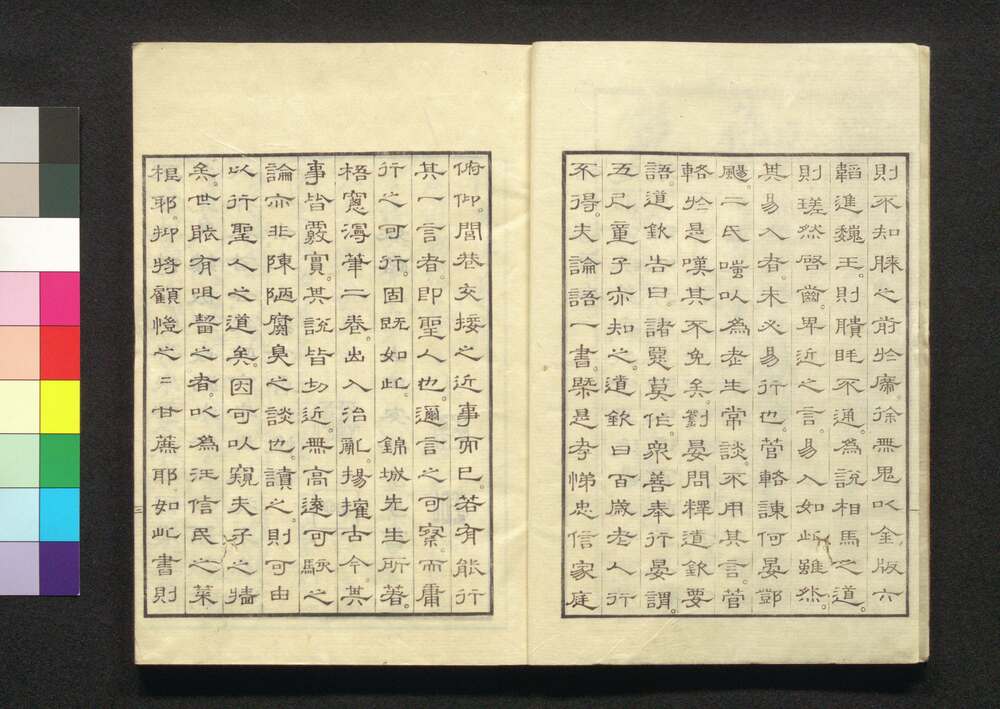 則不知睞之前於廉。徐無鬼以金版六
韜進魏王。則聵眊不通。為說相馬之道。
則瑳然啓齒。卑近之言。易入如此。雖然。
其易入者。未必易行也。管輅諫何晏鄧
颺。二氏嗤以為老生常談。不用其言。管
輅於是嘆其不免矣。劉晏問釋道欽要
語。道欽告曰。諸惡莫作。衆善奉行。晏謂。
五尺童子亦知之。道欽曰百歲老人行
不得。夫論語一書。槩是孝悌忠信家庭
俯仰。閭巷交接之近事而已。若有能行
其一言者。即聖人也。邇言之可察。而庸
行之可行。固既如此。錦城先生所著。
梧窻漫筆二卷。出入治亂。揚搉古今。其
事皆覈實。其說皆切近。無高遠可駭之
論亦非陳陋腐臭之談也。讀之。則可由
以行聖人之道矣。因可以窺夫子之牆
矣。世眂有咀嚼之者。以為汪信民之菜
根耶。抑將顧愷之〻甘蔗耶如此書則